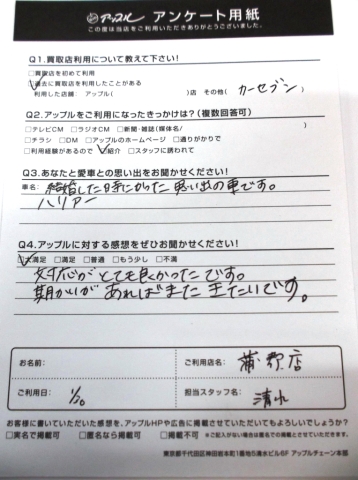 アップル アンケート用紙
この度は当店をご利用いただきありがとうございました。
Q1.買取店利用について教えて下さい!
□買取店を初めて利用
☑過去に買取店を利用したことがある
利用した店舗: アップル( )店 その他( カーセブン )
Q2.アップルをご利用になったきっかけは?(複数回答可)
□テレビCM □ラジオCM □新聞・雑誌(媒体名/ )
□チラシ □DM □アップルのホームページ □通りがかりで
□利用経験があるので ☑紹介 □スタッフに誘われて
Q3.あなたと愛車との思い出をお聞かせください!
車名: 結婚した時にかった思い出の車です。
ハリアー
Q4.アップルに対する感想をぜひお聞かせください!
☑大満足 □満足 □普通 □もう少し □不満
対応がとても良かったです。
期かいがあればまた来たいです。
お名前:
ご利用店名: 蒲郡店
ご利用日: 1/20
担当スタッフ名: 清水
お客様に書いていただいた感想を、アップルHPや広告に掲載させていただいてもよろしいでしょうか?
□実名で掲載可 □匿名なら掲載可 □掲載不可 ※ご記入がない場合は匿名での掲載とさせていただきます。
東京都千代田区神田岩本町1番地5清水ビル6F アップルチェーン本部